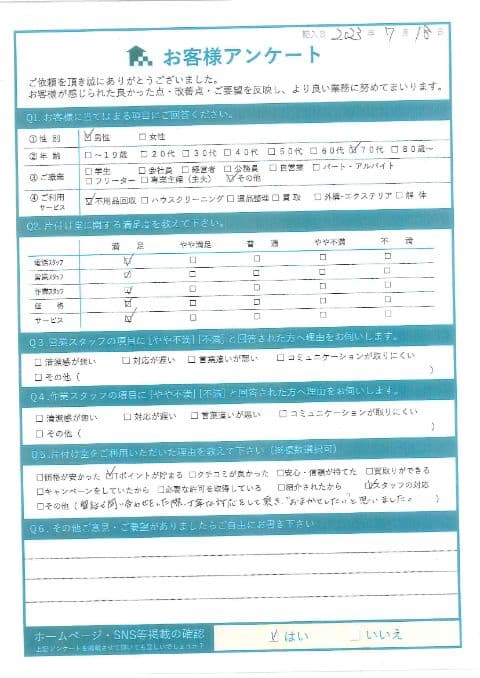 記入日 2023 年 7 月 18 日
お客様アンケート
ご依頼を頂き誠にありがとうございました。
お客様が感じられた良かった点・改善点・ご要望を反映し、より良い業務に努めてまいります。
Q1.お客様に当てはまる項目にご回答ください。
①性 別 ☑男性 □女性
②年 齢 □～19歳 □20代 □30代 □40代 □50代 □60代 ☑70代 □80歳～
③ご職業 □学生 □会社員 □経営者 □公務員 □自営業 □パート・アルバイト
□フリーター □専業主婦（主夫） ☑その他
④ご利用サービス ☑不用品回収 □ハウスクリーニング □遺品整理 □買取 □外構・エクステリア □解体
Q2.片付け堂に関する満足度を教えて下さい。
満 足 やや満足 普 通 やや不満 不 満
電話スタッフ ☑ □ □ □ □
営業スタッフ ☑ □ □ □ □
作業スタッフ ☑ □ □ □ □
価 格 ☑ □ □ □ □
サービス ☑ □ □ □ □
Q3.営業スタッフの項目に[やや不満][不満]と回答された方へ理由をお伺いします。
□清潔感が無い □対応が遅い □言葉遣いが悪い □コミュニケーションが取りにくい
□その他（ ）
Q4.作業スタッフの項目に[やや不満][不満]と回答された方へ理由をお伺いします。
□清潔感が無い □対応が遅い □言葉遣いが悪い □コミュニケーションが取りにくい
□その他（ ）
Q5.片付け堂をご利用いただいた理由を教えて下さい（※複数選択可）
□価格が安かった ☑Tポイントが貯まる □クチコミが良かった □安心・信頼が持てた □買取りができる
□キャンペーンをしていたから □必要な許可を取得している □紹介されたから ☑スタッフの対応
□その他（電話で問い合わせをした際、丁寧な対応をして頂き、"おまかせしたい"と思いました。）
Q6.その他ご意見・ご要望がありましたらご自由にお書き下さい
ホームページ・SNS等掲載の確認 ☑はい □いいえ
上記アンケートを掲載させて頂いても宜しいでしょうか？